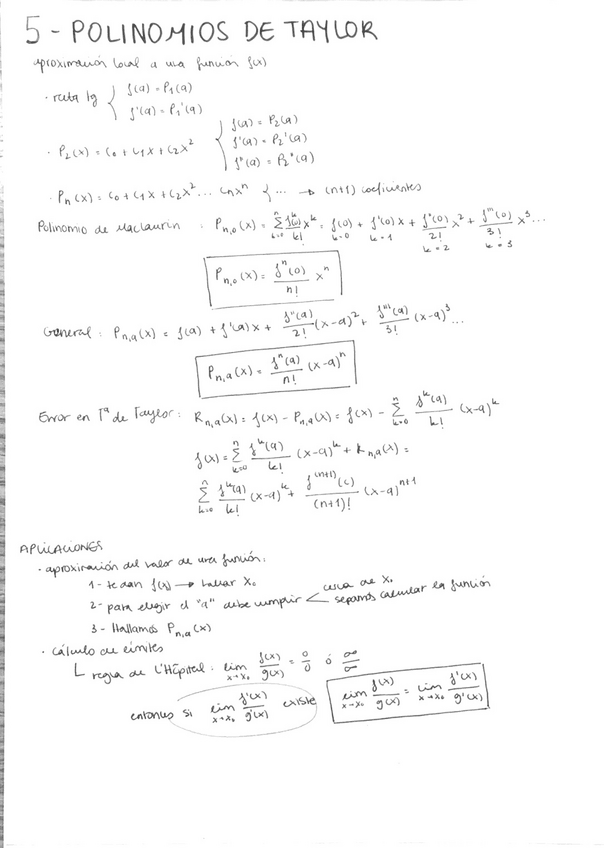 5 - POLINOMIOS DE TAYLOR
aproximación local a una función f(x)
· recta tg { f(a) = P₁(a)
f'(a) = P₁'(a)
· P₂(x) = c₀ + c₁x + c₂x² { f(a) = P₂(a)
f'(a) = P₂'(a)
f''(a) = P₂''(a)
· Pₙ(x) = c₀ + c₁x + c₂x² ... cₙxⁿ { ... → (n+1) coeficientes
Polinomio de Maclaurin : Pₙ,₀(x) = Σₖ₌₀ⁿ fᵏ(0)/k! xᵏ = f(0) + f'(0)x + f''(0)/2! x² + f'''(0)/3! x³ ...
k=0 k=1 k=2 k=3
Pₙ,₀(x) = fⁿ(0)/n! xⁿ
General : Pₙ,ₐ(x) = f(a) + f'(a)x + f''(a)/2! (x-a)² + f'''(a)/3! (x-a)³ ...
Pₙ,ₐ(x) = fⁿ(a)/n! (x-a)ⁿ
Error en Tª de Taylor : Rₙ,ₐ(x) = f(x) - Pₙ,ₐ(x) = f(x) - Σₖ₌₀ⁿ fᵏ(a)/k! (x-a)ᵏ
f(x) = Σₖ₌₀ⁿ fᵏ(a)/k! (x-a)ᵏ + Rₙ,ₐ(x) =
Σₖ₌₀ⁿ fᵏ(a)/k! (x-a)ᵏ + f⁽ⁿ⁺¹⁾(c)/(n+1)! (x-a)ⁿ⁺¹
APLICACIONES
· aproximación del valor de una función:
1 - te dan f(x) → hallar x₀
2 - para elegir el "a" debe cumplir < cerca de x₀
sepamos calcular la función
3 - Hallamos Pₙ,ₐ(x)
· cálculo de límites
└ regla de L'Hôpital : lim x→x₀ f(x)/g(x) = 0/0 ó ∞/∞
entonces si lim x→x₀ f'(x)/g'(x) existe lim x→x₀ f(x)/g(x) = lim x→x₀ f'(x)/g'(x)